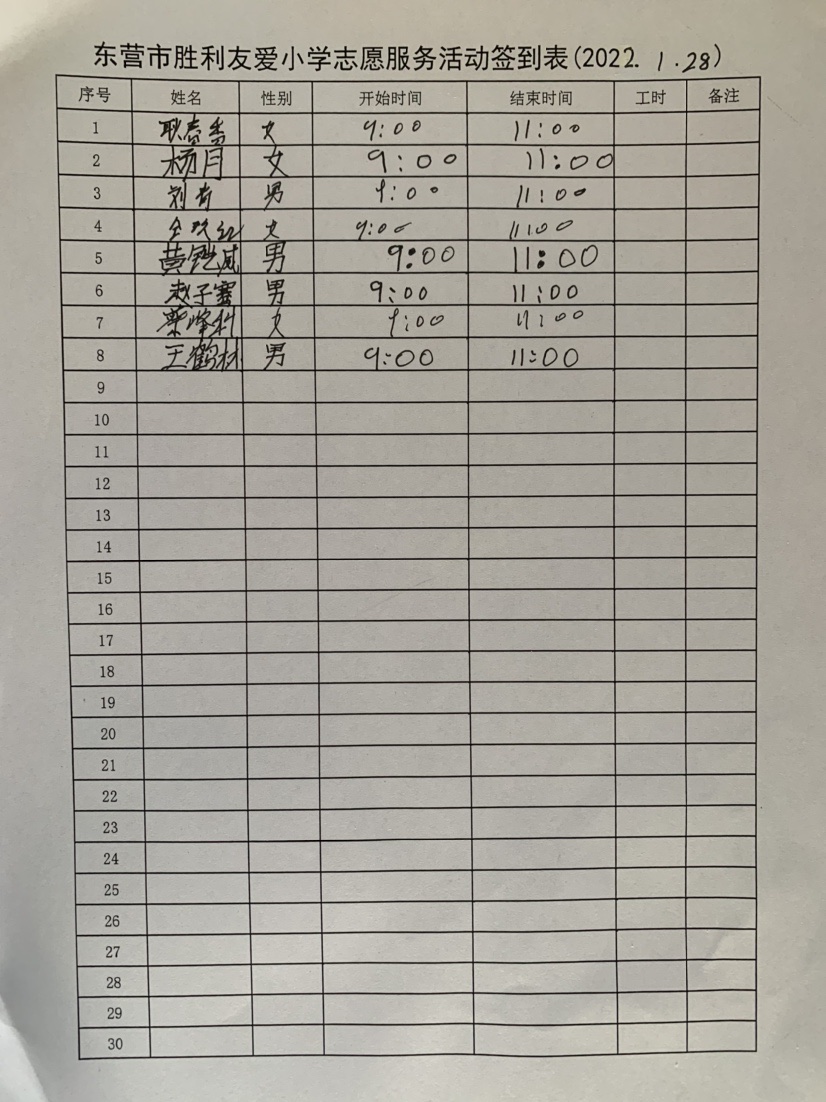 东营市胜利友爱小学志愿服务活动签到表(2022. 1.28)
序号 姓名 性别 开始时间 结束时间 工时 备注
1 耿春香 女 9:00 11:00
2 杨月 女 9:00 11:00
3 刘 男 9:00 11:00
4 女 9:00 11:00
5 黄 威 男 9:00 11:00
6 赵子 男 9:00 11:00
7 女 9:00 11:00
8 王鹤林 男 9:00 11:00
9
10
11
12
13
14
15
16
17
18
19
20
21
22
23
24
25
26
27
28
29
30